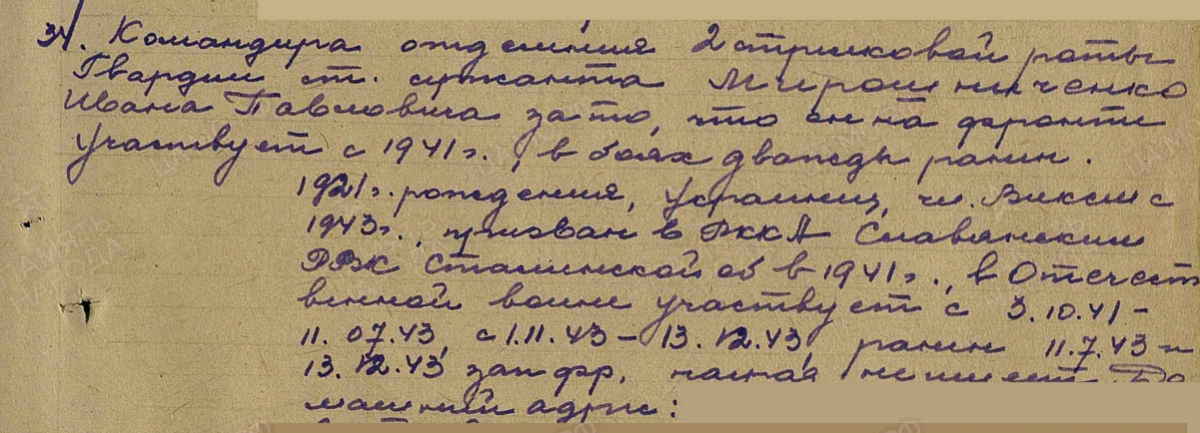 34. Командира отделения 2 стрелковой роты
Гвардии ст. сержанта Мирошниченко
Ивана Павловича за то, что он на фронте
участвует с 1941 г., в боях дважды ранен.
1921 г. рождения, украинец, чл. ВЛКСМ с
1943 г., призван в РККА Славянским
РВК Сталинской об в 1941 г., в Отечест
венной войне участвует с 3.10.41 –
11.07.43, с 1.11.43 – 13.12.43, ранен 11.7.43 и
13.12.43 зап фр, не имеет. До
машний адрес: